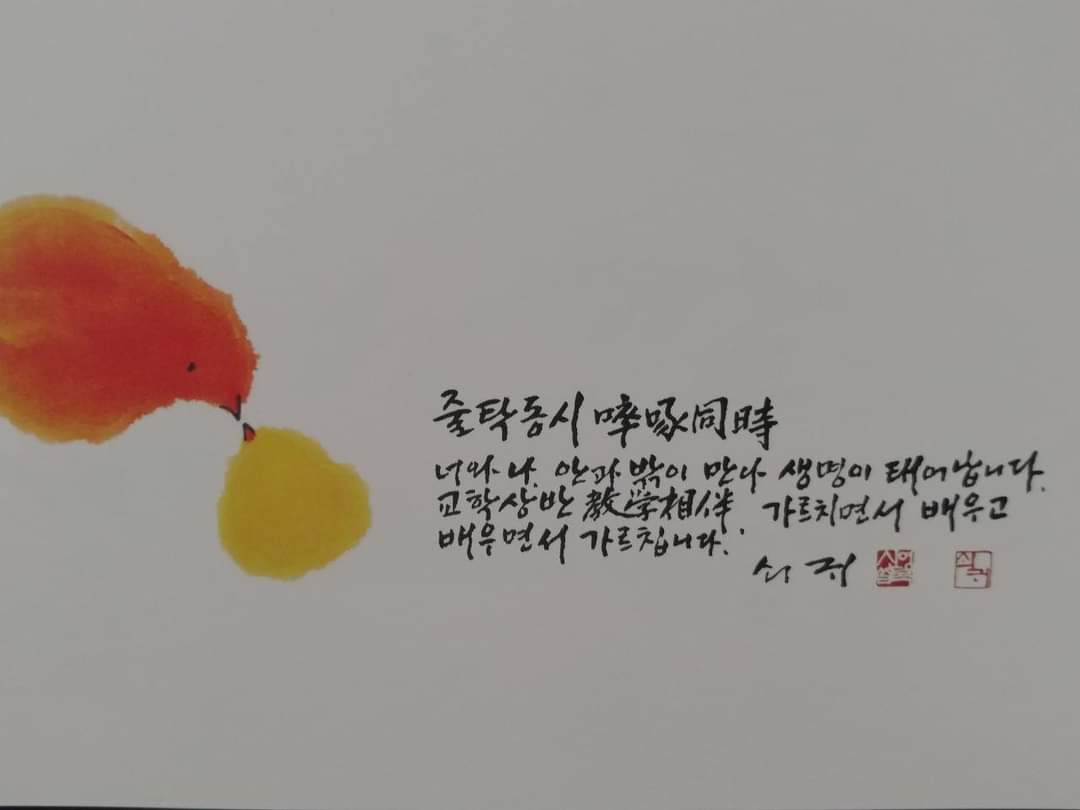 줄탁동시 啐啄同時
너와 나. 안과 밖이 만나 생명이 태어납니다.
교학상반 教学相伴 가르치면서 배우고
배우면서 가르칩니다.
쇠귀